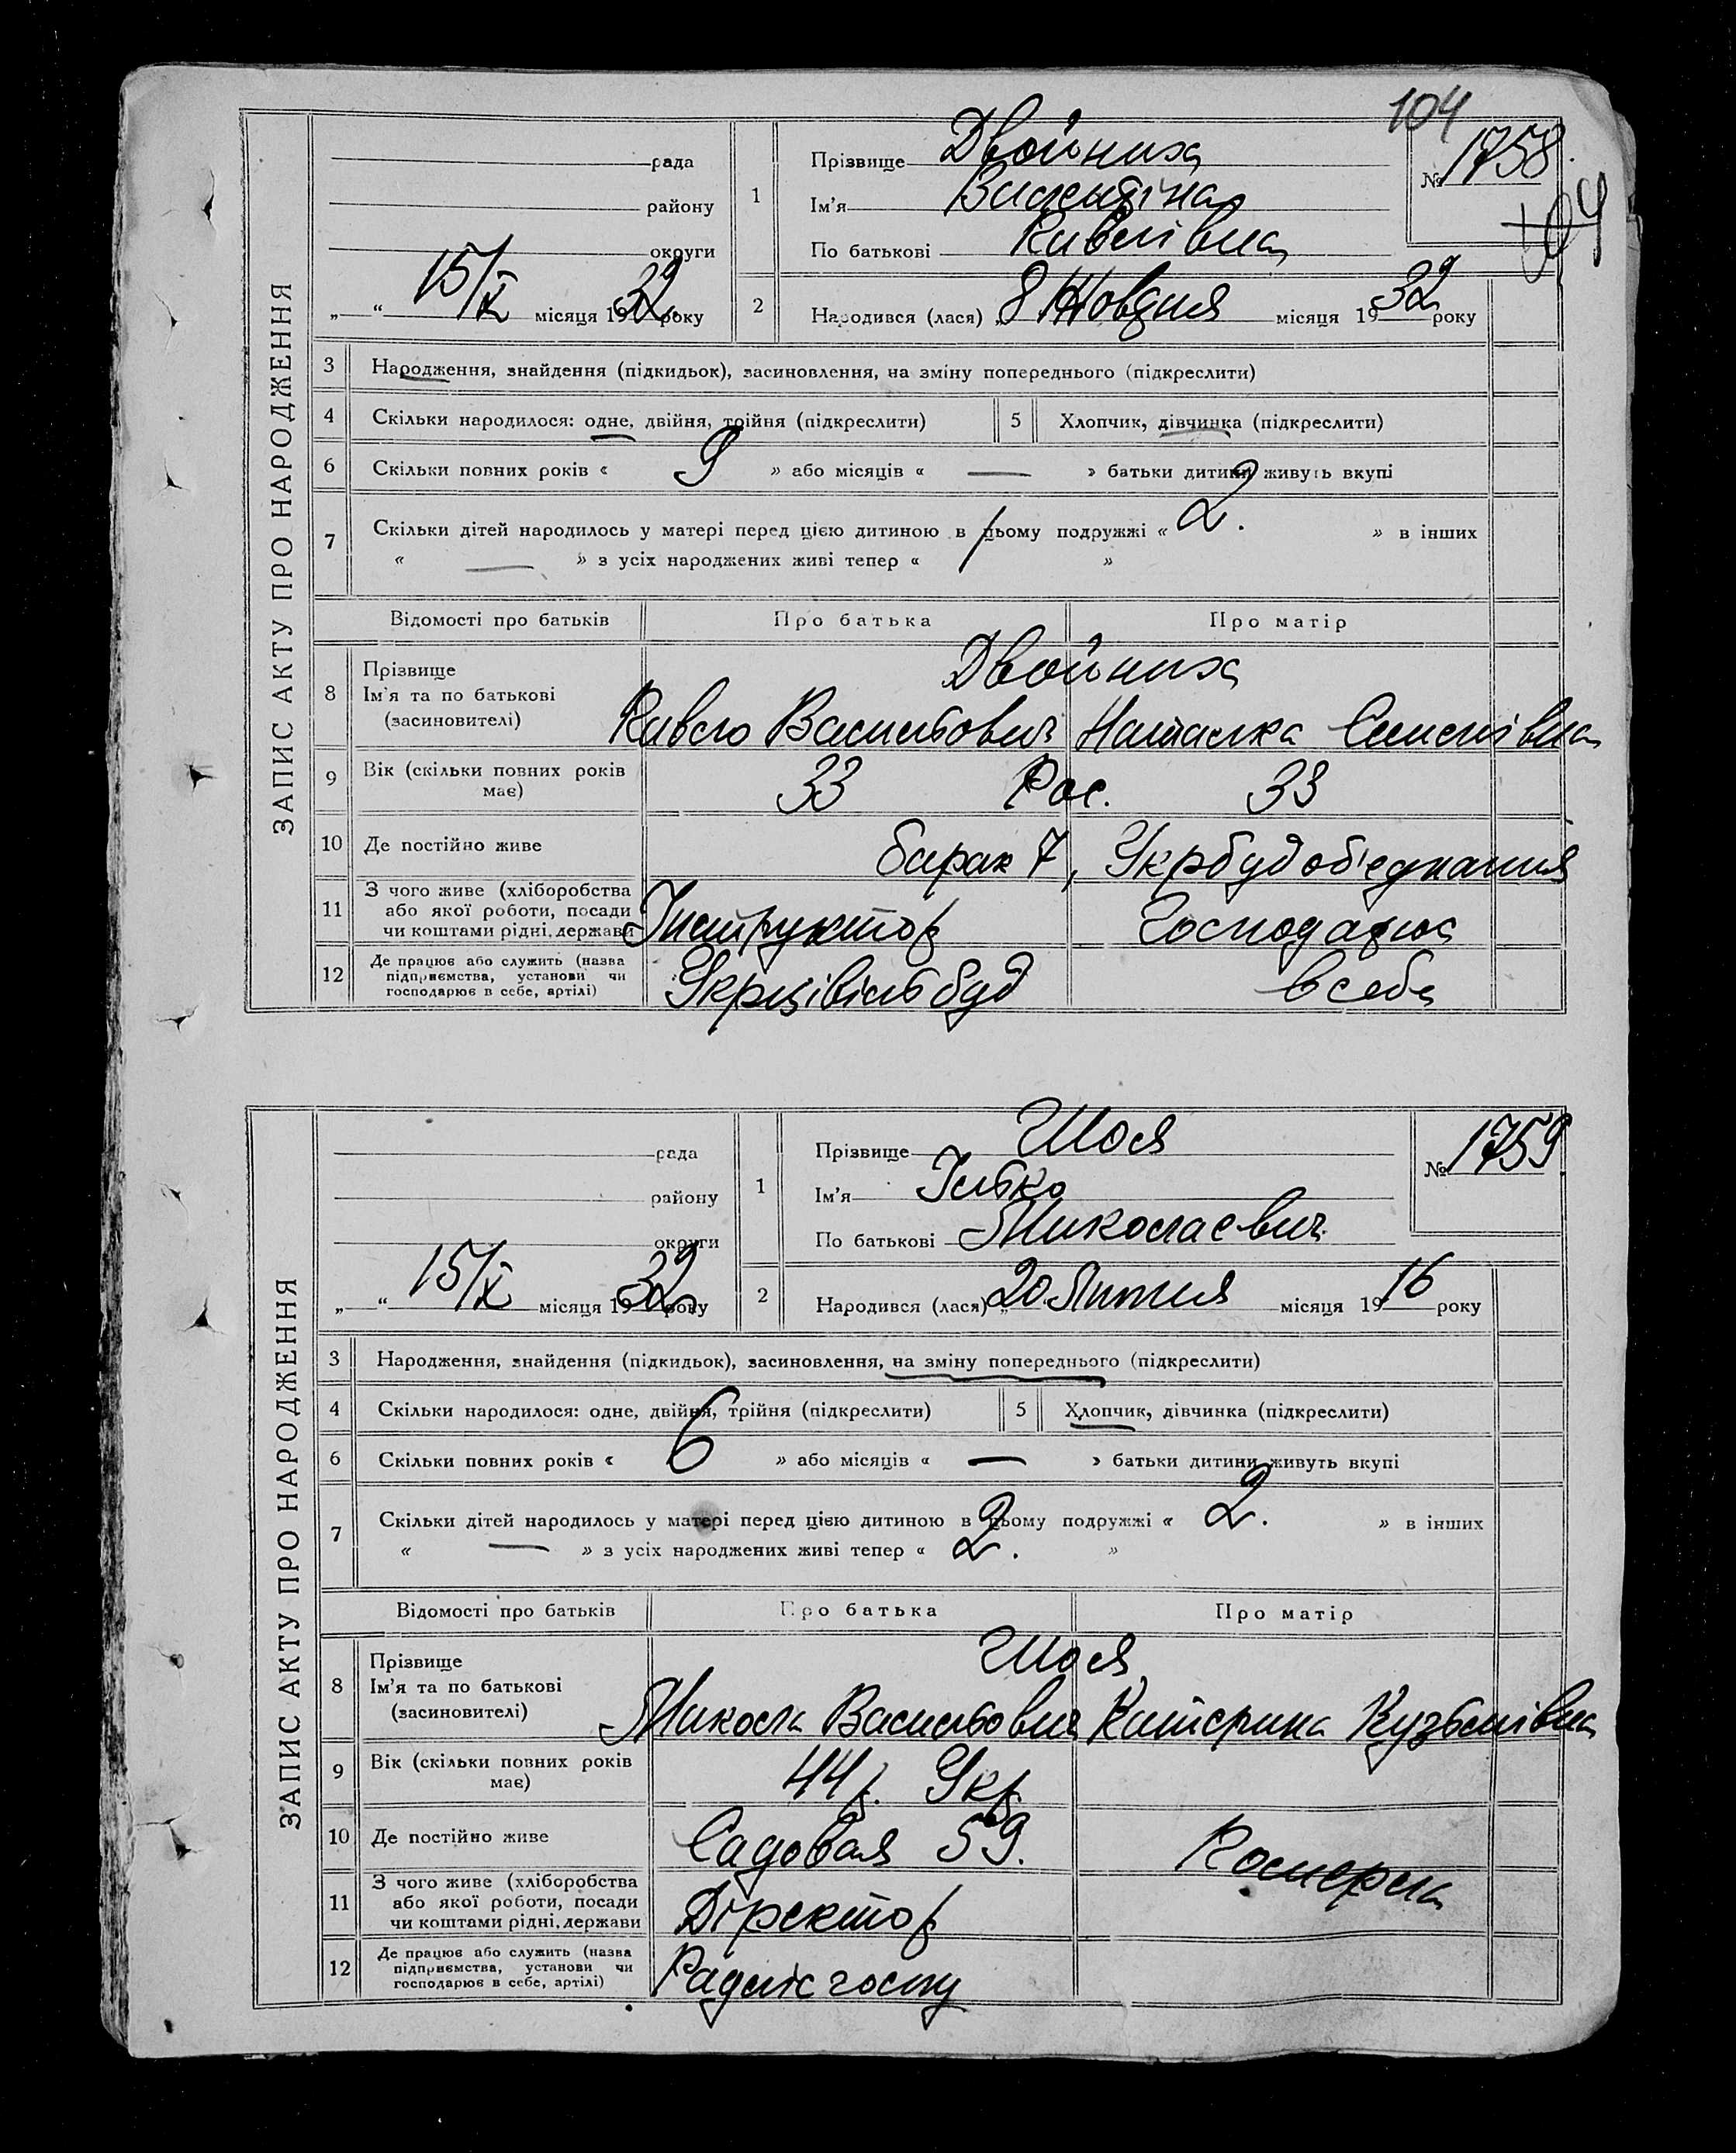 104
ЗАПИС АКТУ ПРО НАРОДЖЕННЯ
рада
району
округи
„ “ 15/X місяця 1932 року
1
Прізвище Двойних
Ім'я Валентіна
По батькові Павлівна
№ 1758
104
2
Народився (лася) „ 8 Жовтня місяця 1932 року
3 Народження, знайдення (підкидьок), засиновлення, на зміну попереднього (підкреслити)
4 Скільки народилося: одне, двійня, трійня (підкреслити) 5 Хлопчик, дівчинка (підкреслити)
6 Скільки повних років « 9 » або місяців « — » батьки дитини живуть вкупі
7 Скільки дітей народилось у матері перед цією дитиною в цьому подружжі « 2. » в інших
« — » з усіх народжених живі тепер « 1 »
Відомості про батьків Про батька Про матір
8 Прізвище Двойних
Ім'я та по батькові
(засиновителі) Павло Васильович Наталка Семенівна
9 Вік (скільки повних років має) 33 Рос. 33
10 Де постійно живе барак 7, Укрбудоб'єднання
11 З чого живе (хліборобства
або якої роботи, посади
чи коштами рідні, держави Інструктор Господарює
12 Де працює або служить (назва
підприємства, установи чи
господарює в себе, артілі) Укрцівільбуд в себе
ЗАПИС АКТУ ПРО НАРОДЖЕННЯ
рада
району
округи
„ “ 15/X місяця 1932 року
1
Прізвище Шоя
Ім'я Ілько
По батькові Миколаєвич
№ 1759
2
Народився (лася) „ 20 Липня місяця 1916 року
3 Народження, знайдення (підкидьок), засиновлення, на зміну попереднього (підкреслити)
4 Скільки народилося: одне, двійня, трійня (підкреслити) 5 Хлопчик, дівчинка (підкреслити)
6 Скільки повних років « 6 » або місяців « — » батьки дитини живуть вкупі
7 Скільки дітей народилось у матері перед цією дитиною в цьому подружжі « 2. » в інших
« — » з усіх народжених живі тепер « 2. »
Відомості про батьків Про батька Про матір
8 Прізвище Шоя
Ім'я та по батькові
(засиновителі) Микола Васильович Катерина Кузьмівна
9 Вік (скільки повних років має) 44 р. Укр.
10 Де постійно живе Садовая 59. Померла
11 З чого живе (хліборобства
або якої роботи, посади
чи коштами рідні, держави Діректор
12 Де працює або служить (назва
підприємства, установи чи
господарює в себе, артілі) Радлісгоспу